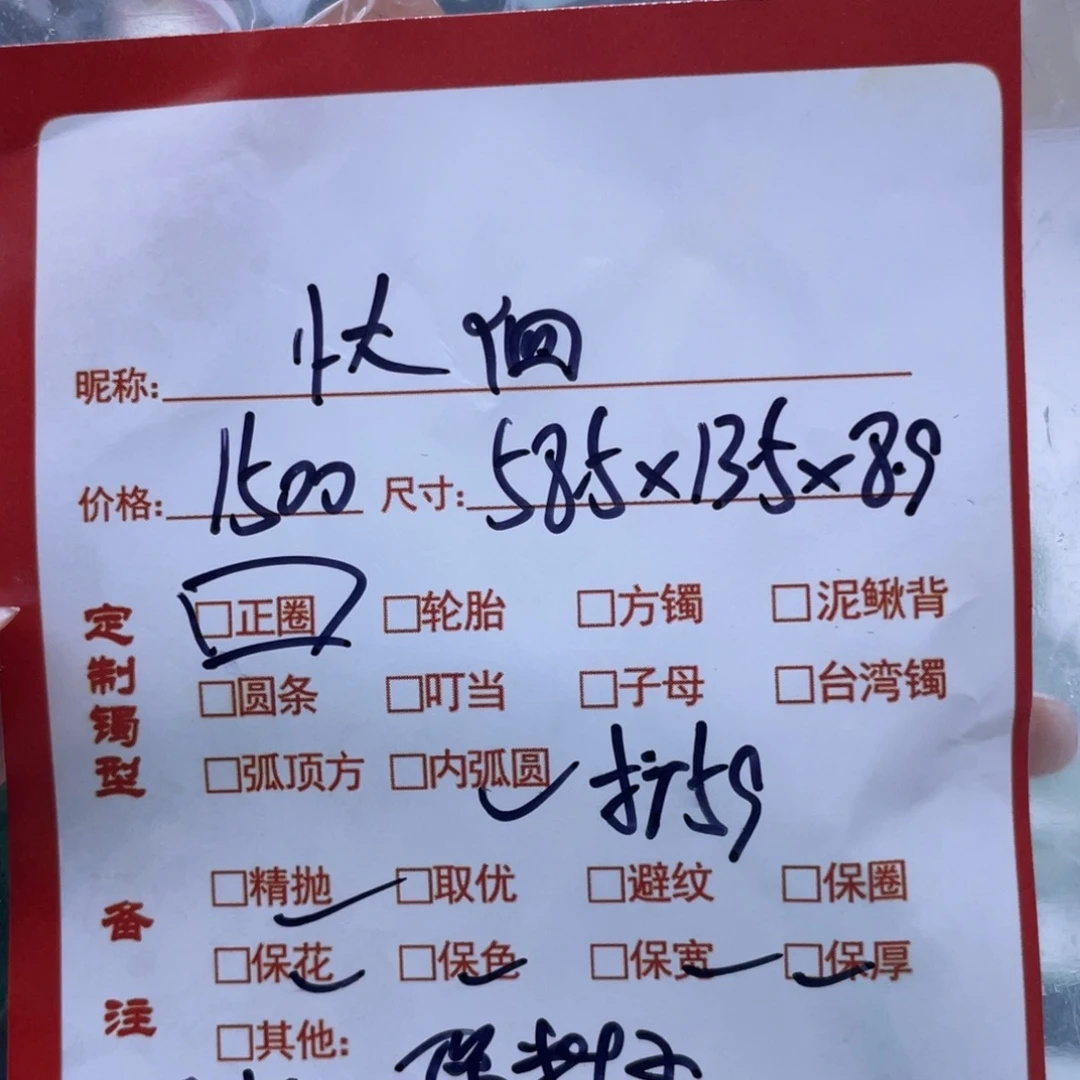 昵称:
价格: 1500 尺寸: 58.5×13.5×8.9
定制镯型
□正圈 □轮胎 □方镯 □泥鳅背
□圆条 □叮当 □子母 □台湾镯
□弧顶方 □内弧圆 59
备注
□精抛 □取优 □避纹 □保圈
□保花 □保色 □保宽 □保厚
□其他: 保